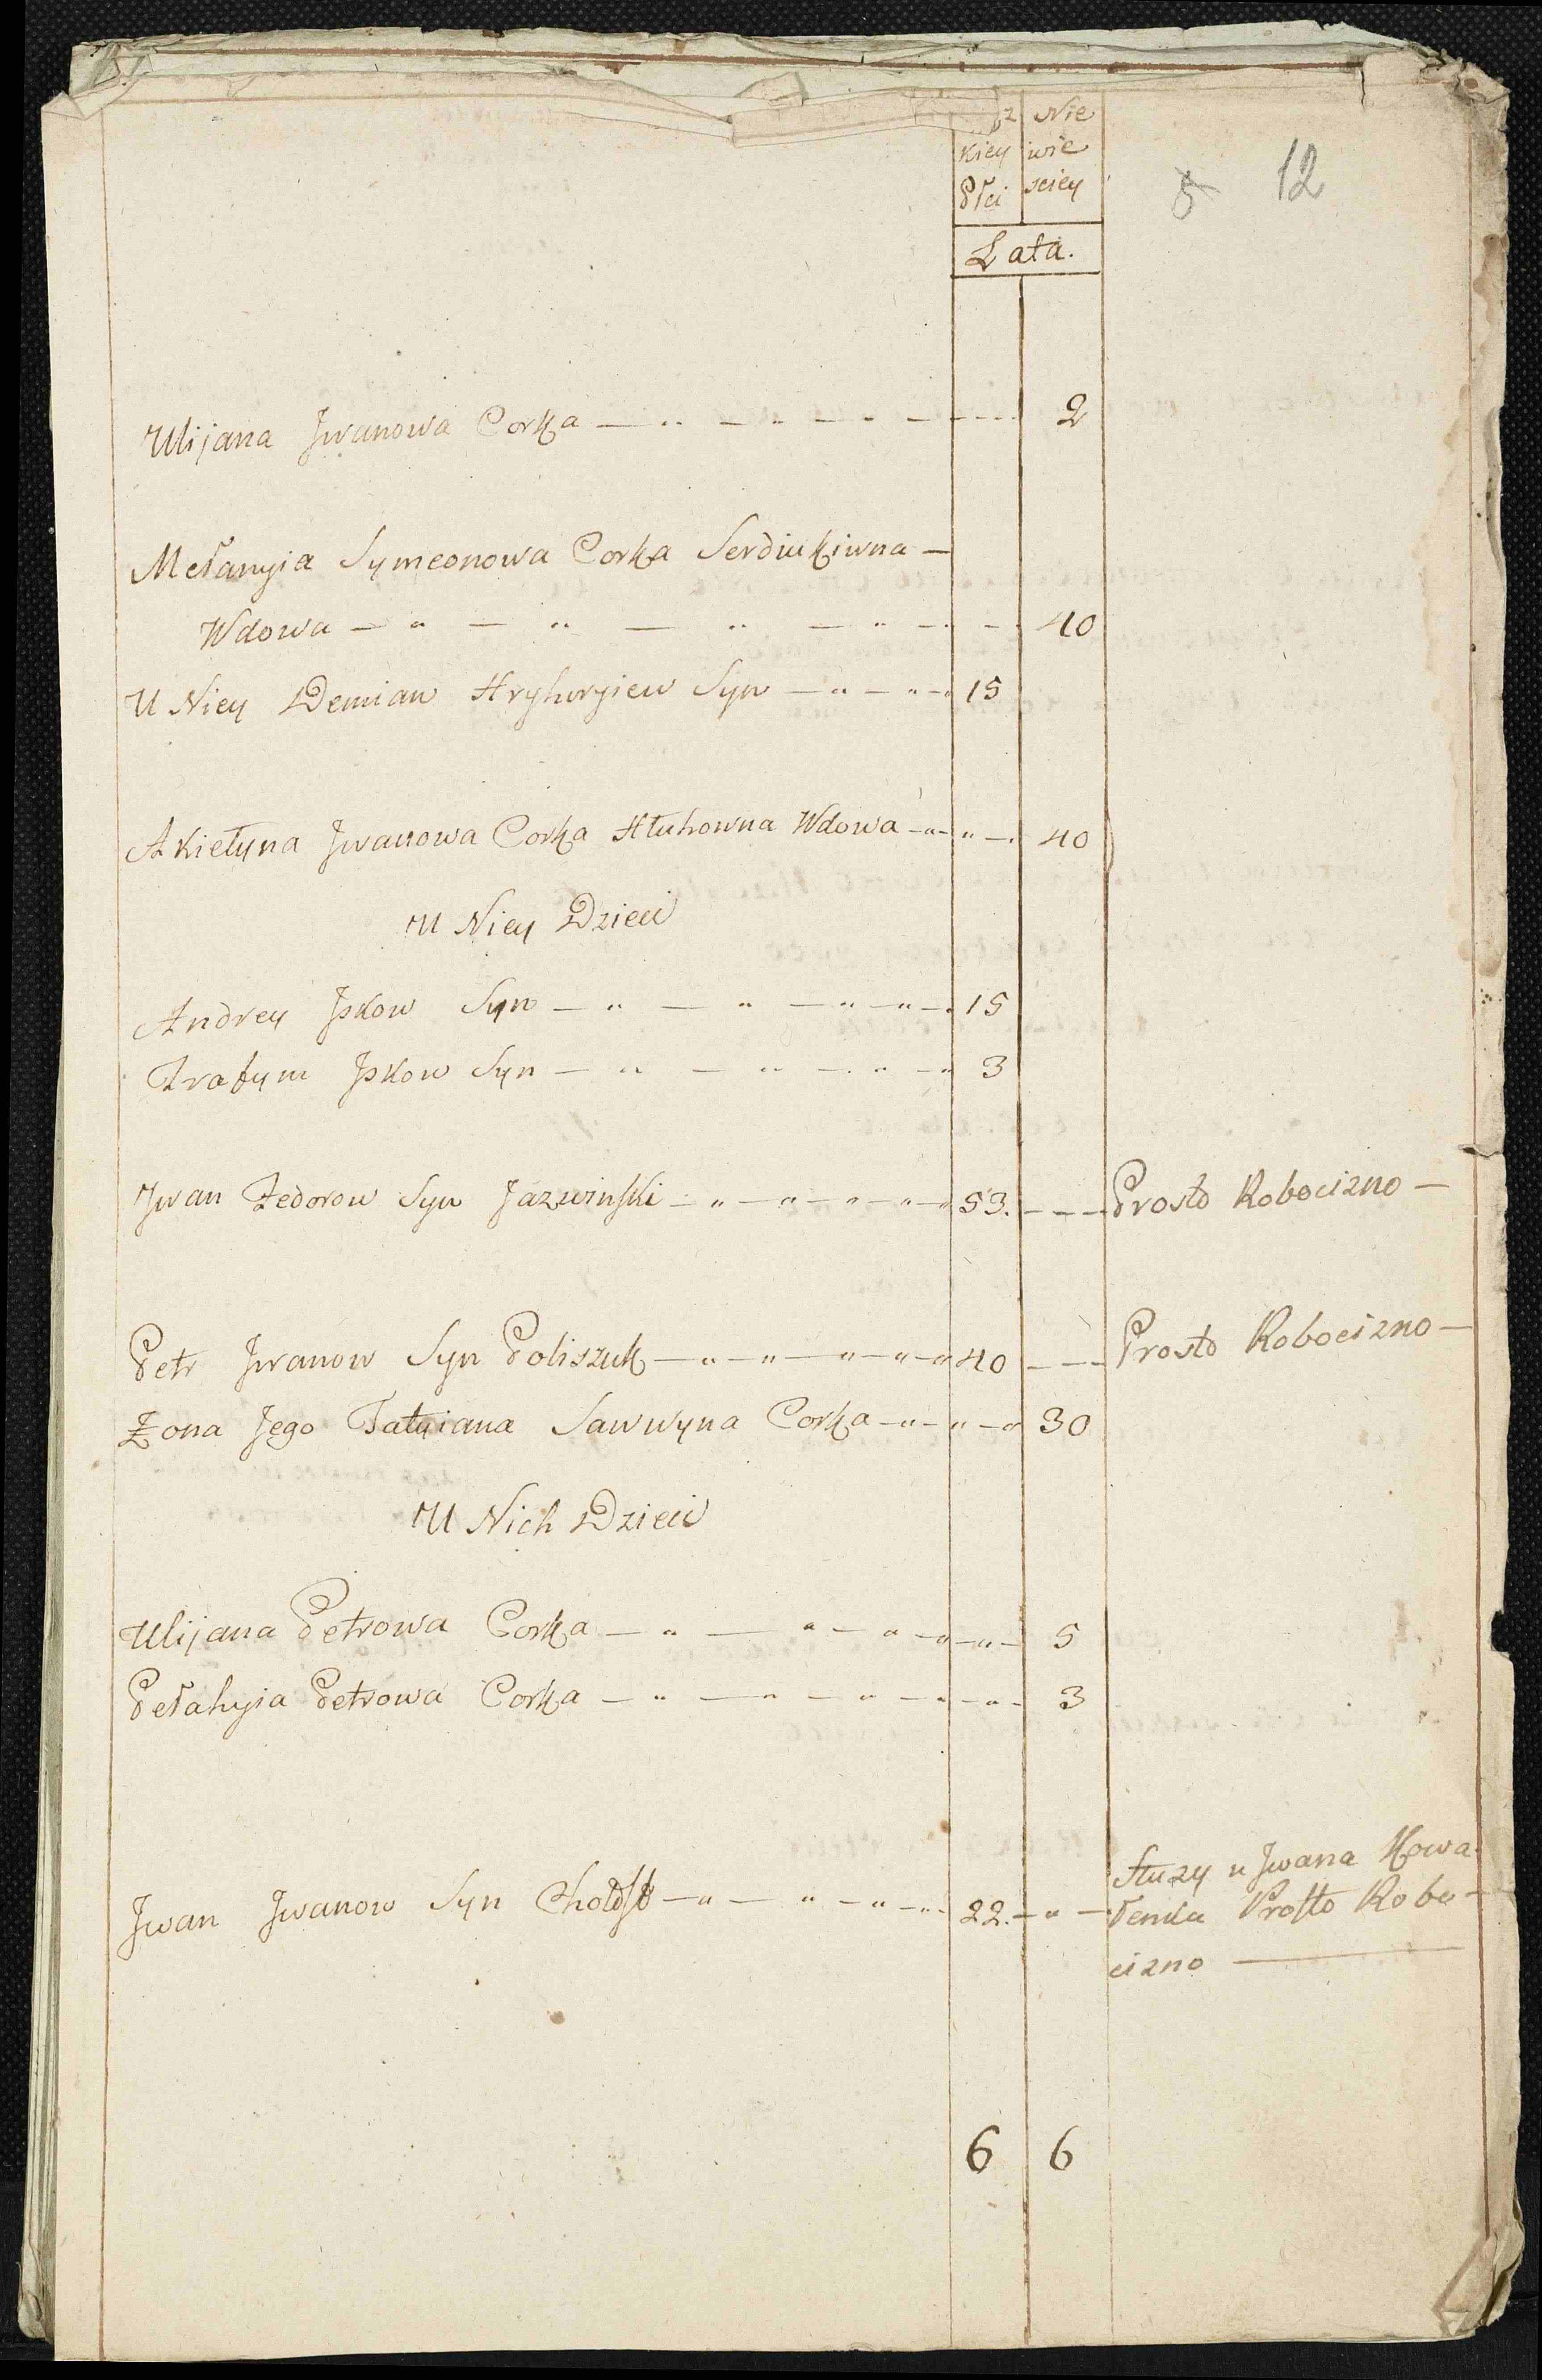 Nie
kiey wie
Płci sciey
12
Lata.
Ulijana Jwanowa Corka 2
Mełanyia Symeonowa Corka Serdiukiwna
Wdowa 40
U Niey Demian Hryhoryiew Syn 15
Akiełyna Jwanowa Corka Hłuhowna Wdowa 40
U Niey Dzieci
Andrey Jskow Syn 15
Trafym Jskow Syn 3
Jwan Fedorow Syn Jazwinski 53. Prosto Robocizno
Petr Jwanow Syn Poliszuk 40 Prosto Robocizno
Zona Jego Tatyiana Sawwyna Corka 30
U Nich Dzieci
Ulijana Petrowa Corka 5
Pełahyia Petrowa Corka 3
Słuzy u Jwana Kowa
Jwan Jwanow Syn 22. łenka Prosto Robo
cizno
6 6